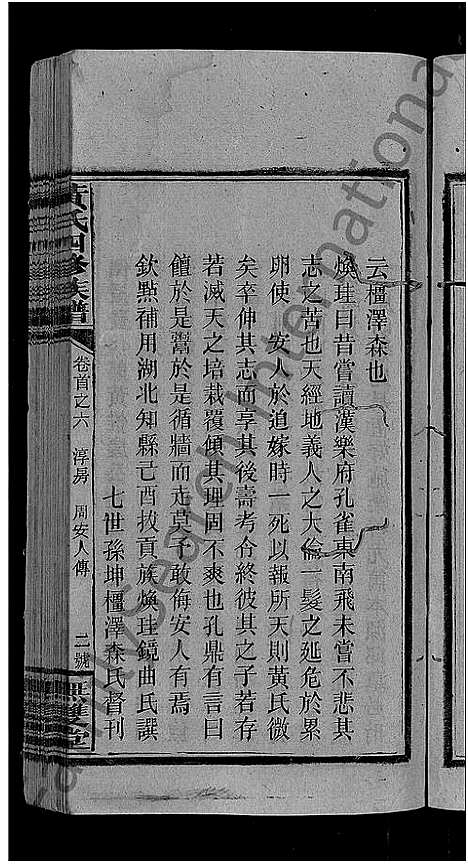 云橿澤森也
煥珪曰昔嘗讀漢樂府孔雀東南飛未嘗不悲其
志之苦也天經地義人之大倫一髮之延危於累
卵使　安人於迫嫁時一死以報所天則黃氏微
矣卒伸其志而享其後壽考令終彼其之子若存
若滅天之培栽覆傾其理固不爽也孔鼎有言曰
饘於是鬻於是循牆而走莫予敢侮安人有焉
欽點補用湖北知縣己酉拔貢族煥珪鏡曲氏譔
七世孫坤橿澤森氏督刊
黃氏四修族譜
卷首之六　淳房　周安人傳
二號
無雙堂